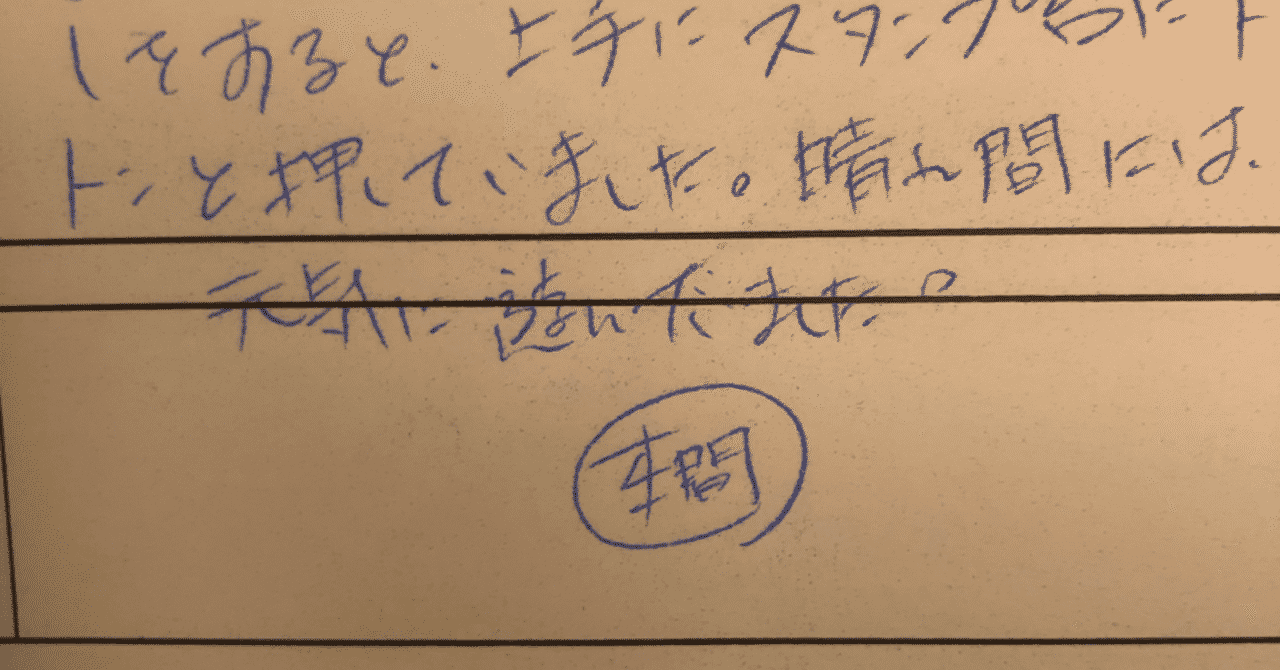 しをすると、上手にスタンプ台にト
トンと押していました。晴れ間には、
元気に遊んでました。
本間